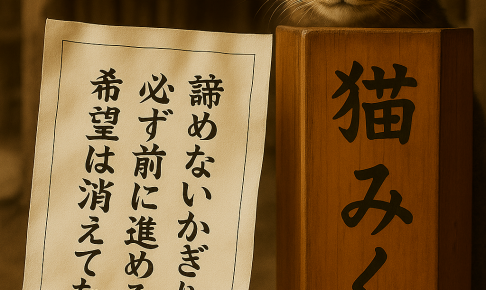 猫みく
諦めないかぎり
必ず前に進め
希望は消えて